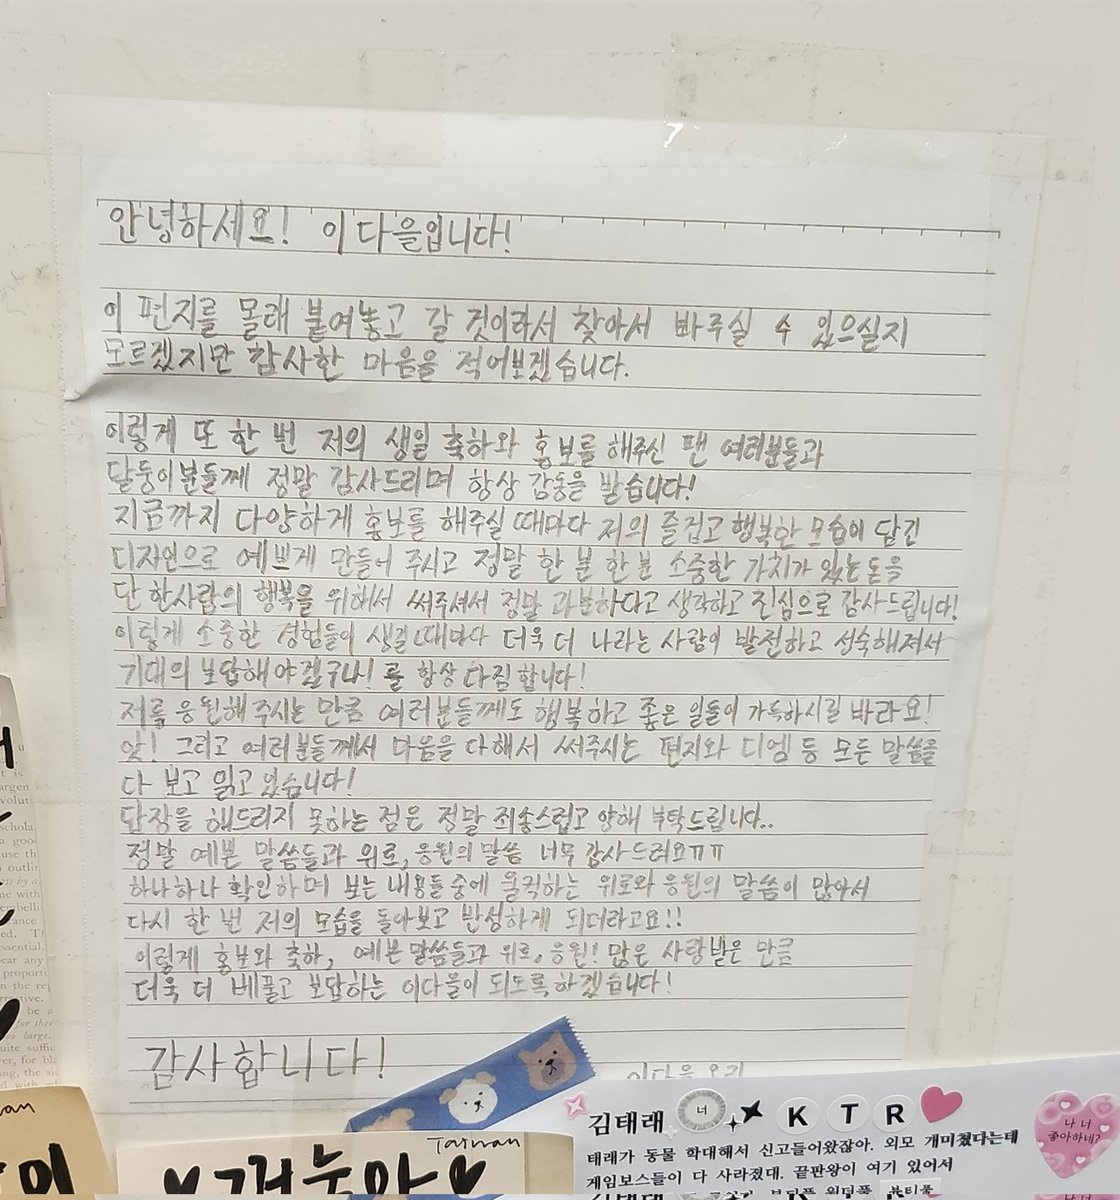 안녕하세요! 이다을입니다!
이 편지를 몰래 붙여놓고 갈 것이라서 찾아서 봐주실 수 있으실지
모르겠지만 감사한 마음을 적어보겠습니다.
이렇게 또 한 번 저의 생일 축하와 홍보를 해주신 팬 여러분들과
달둥이분들께 정말 감사드리며 항상 감동을 받습니다!
지금까지 다양하게 홍보를 해주실 때마다 저의 즐겁고 행복한 모습이 담긴
디자인으로 예쁘게 만들어 주시고 정말 한 분 한 분 소중한 가치가 있는 돈을
단 한사람의 행복을 위해서 써주셔서 정말 과분하다고 생각하고 진심으로 감사드립니다!
이렇게 소중한 경험들이 생길때마다 더욱 더 나라는 사람이 발전하고 성숙해져서
기대의 보답해야겠구나! 를 항상 다짐합니다!
저를 응원해주시는 만큼 여러분들께도 행복하고 좋은 일들이 가득하시길 바라요!
앗! 그리고 여러분들께서 마음을 다해서 써주시는 편지와 디엠 등 모든 말씀을
다 보고 읽고 있습니다!
답장을 해드리지 못하는 점은 정말 죄송스럽고 양해 부탁드립니다..
정말 예쁜 말씀들과 위로, 응원의 말씀 너무 감사드려요ㅠㅠ
하나하나 확인하며 보는 내용들중에 울컥하는 위로와 응원의 말씀이 많아서
다시 한 번 저의 모습을 돌아보고 반성하게 되더라고요!!
이렇게 홍보와 축하, 예쁜 말씀들과 위로, 응원! 많은 사랑받은 만큼
더욱 더 베풀고 보답하는 이다을이 되도록하겠습니다!
감사합니다!
이다을 올림
김태래 너 KTR
나 너
좋아하네?
태래가 동물 학대해서 신고들어왔잖아. 외모 개미쳤다는데
게임보스들이 다 사라졌대. 끝판왕이 여기 있어서
Tarnan